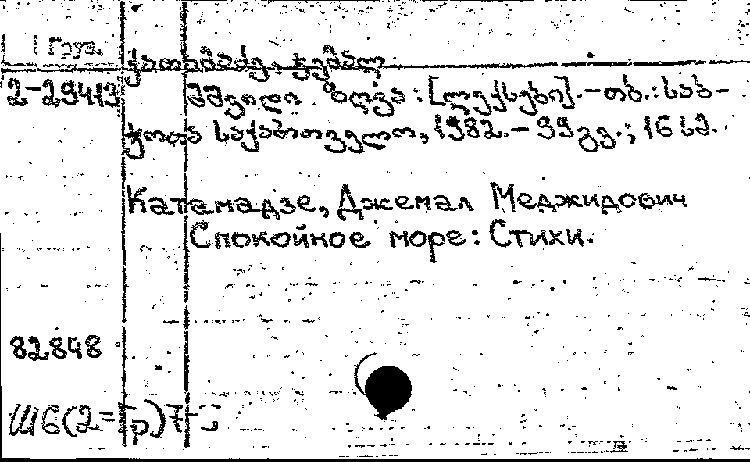 Груз.
ქათამაძე, ჯემალ
2-29413 მშვიდი ზღვა : [ლექსები]. - თბ. : საბ-
ჭოთა საქართველო, 1982. - 99 გვ. ; 16 სმ.
Катамадзе, Джемал Меджидович
Спокойное море : Стихи.
82848
Ш6(2=Гр)7-5